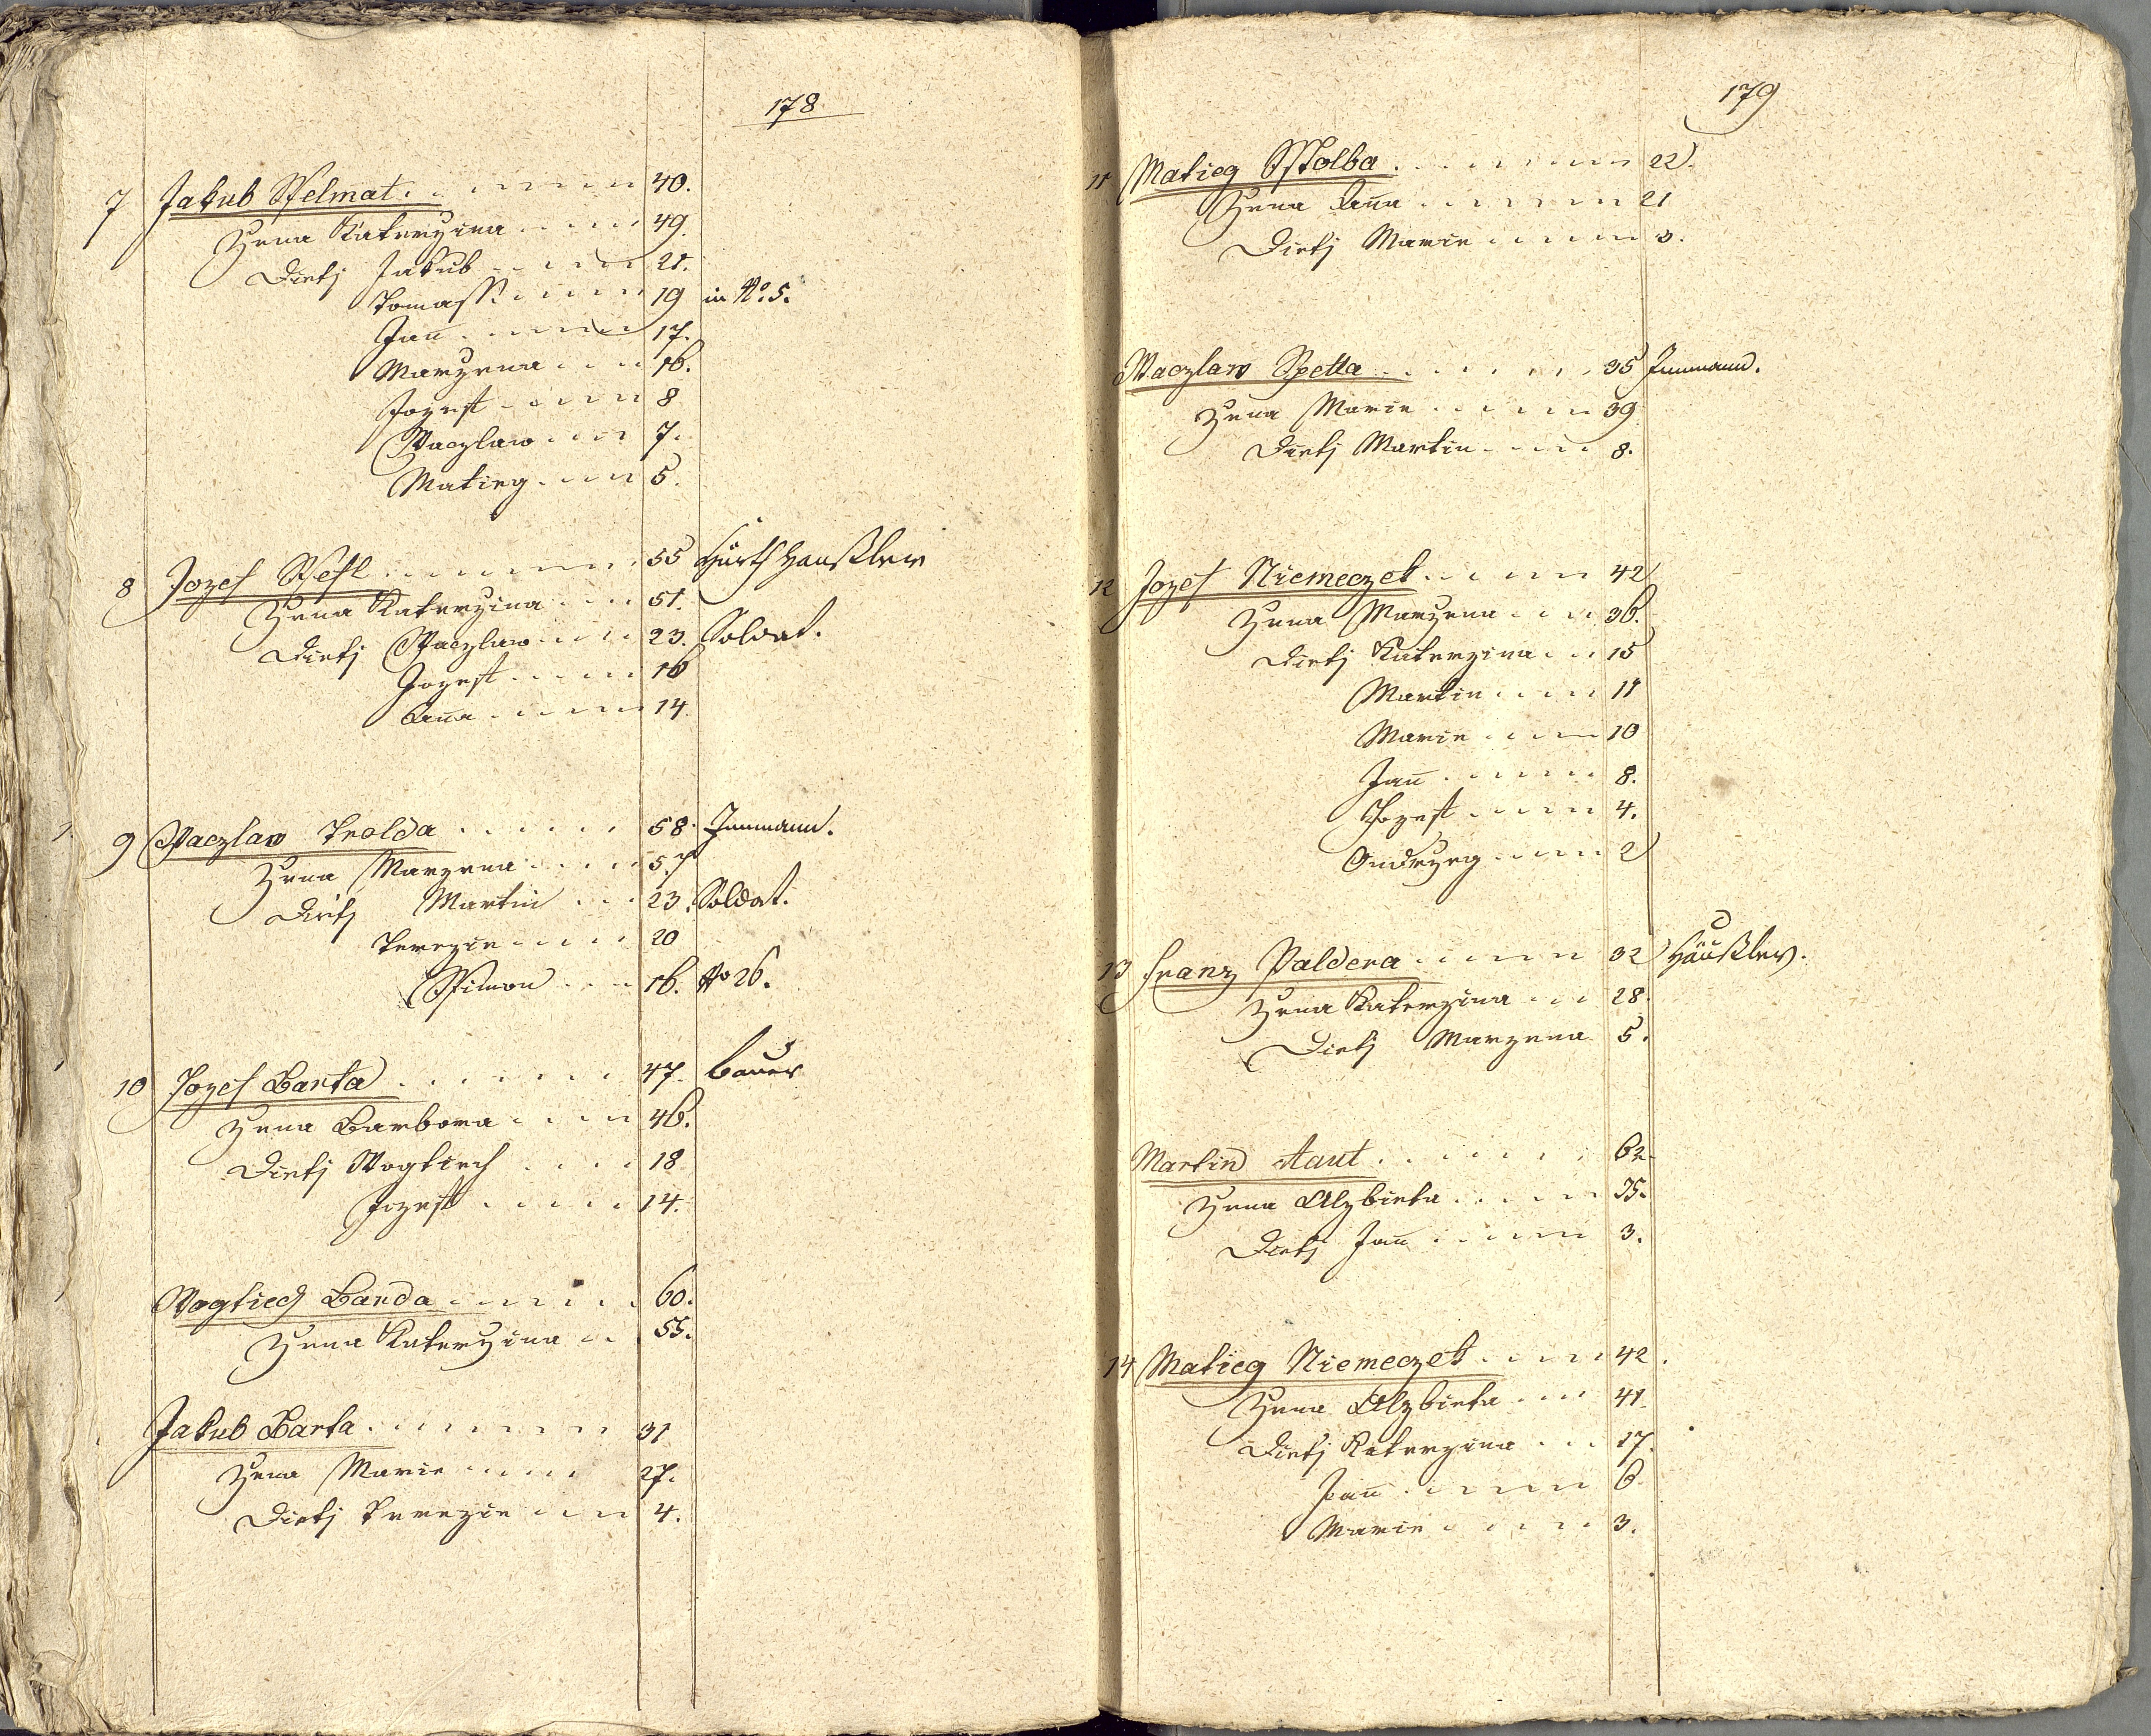 178
7 Jakub Welmat 40.
Zena Katerzina 49.
Dietj Jakub 21.
Tomass 19 in No. 5.
Jan̄ 17.
Marzena 16.
Jozeff 8
Waczlaw 7.
Matieg 5.
8 Jozef Wesl 55 Häußler
Zena Katerzina 51.
Dietj Waczlaw 23. Soldat.
Jozeff 16
An̄a 14.
9 Waczlaw Trolda 58. Innmann.
Zena Marzena 57
Dietj Martin 23. Soldat.
Terezie 20
Ssimon 16. No 26.
10 Jozef Barta 47. bauer
Zena Barbora 46.
Dietj Wogtiech 18
Jozeff 14.
Wogtiech Barda 60.
Zena Katerzina 55.
Jakub Barta 31
Zena Marie 27.
Dietj Terezie 4.
179
11 Matieg Sstolba 22.
Zena An̄a 21
Dietj Marie 3.
Waczlaw Spetta 35 Innmann.
Zena Marie 39
Dietj Martin 8.
12 Jozef Niemeczek 42
Zena Marzena 36.
Dietj Katerzina 15
Martin 11
Marie 10
Jan̄ 8.
Jozeff 4.
Ondrzeg 2
13 Franz Paldera 32 Häußler.
Zena Katerzina 28.
Dietj Marzena 5.
Martin Kaut 62.
Zena Alzbieta 35.
Dietj Jan̄ 3.
14 Matieg Niemeczek 42.
Zena Alzbieta 41.
Dietj Katerzina 17.
Jan̄ 6
Marie 3.